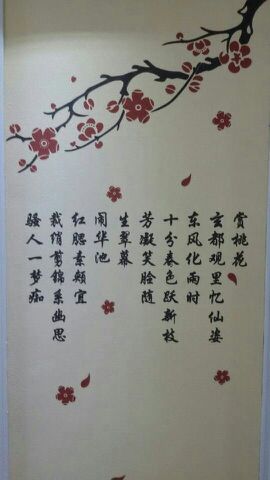 赏桃花
玄都观里忆仙姿
东风化雨时
十分春色跃新枝
芳凝笑脸随
生翠幕
闹华池
红腮素颊宜
裁绡剪锦系幽思
骚人一梦痴